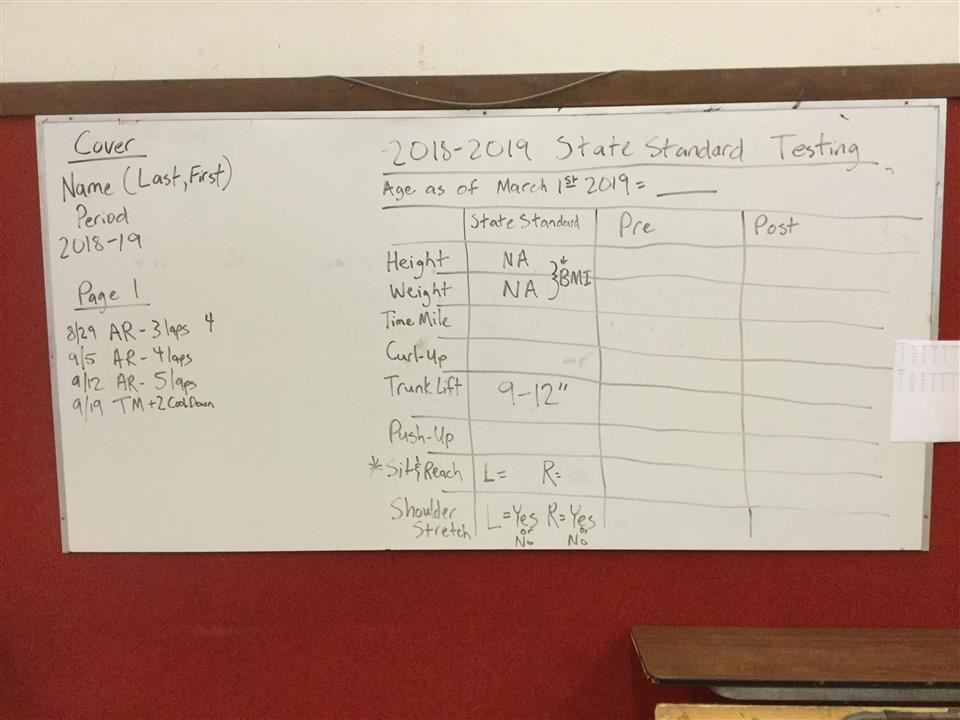 Cover
Name (Last, First)
Period
2018-19
Page 1
8/29 AR - 3 laps 4
9/5 AR - 4 laps
9/12 AR - 5 laps
9/19 TM + 2 Cool Down
2018-2019 State Standard Testing
Age as of March 1st 2019 = ______
State Standard Pre Post
Height NA
Weight NA } * BMI
Time Mile
Curl-Up
Trunk Lift 9-12"
Push-Up
* Sit & Reach L= R=
Shoulder Stretch L=Yes or No R=Yes or No